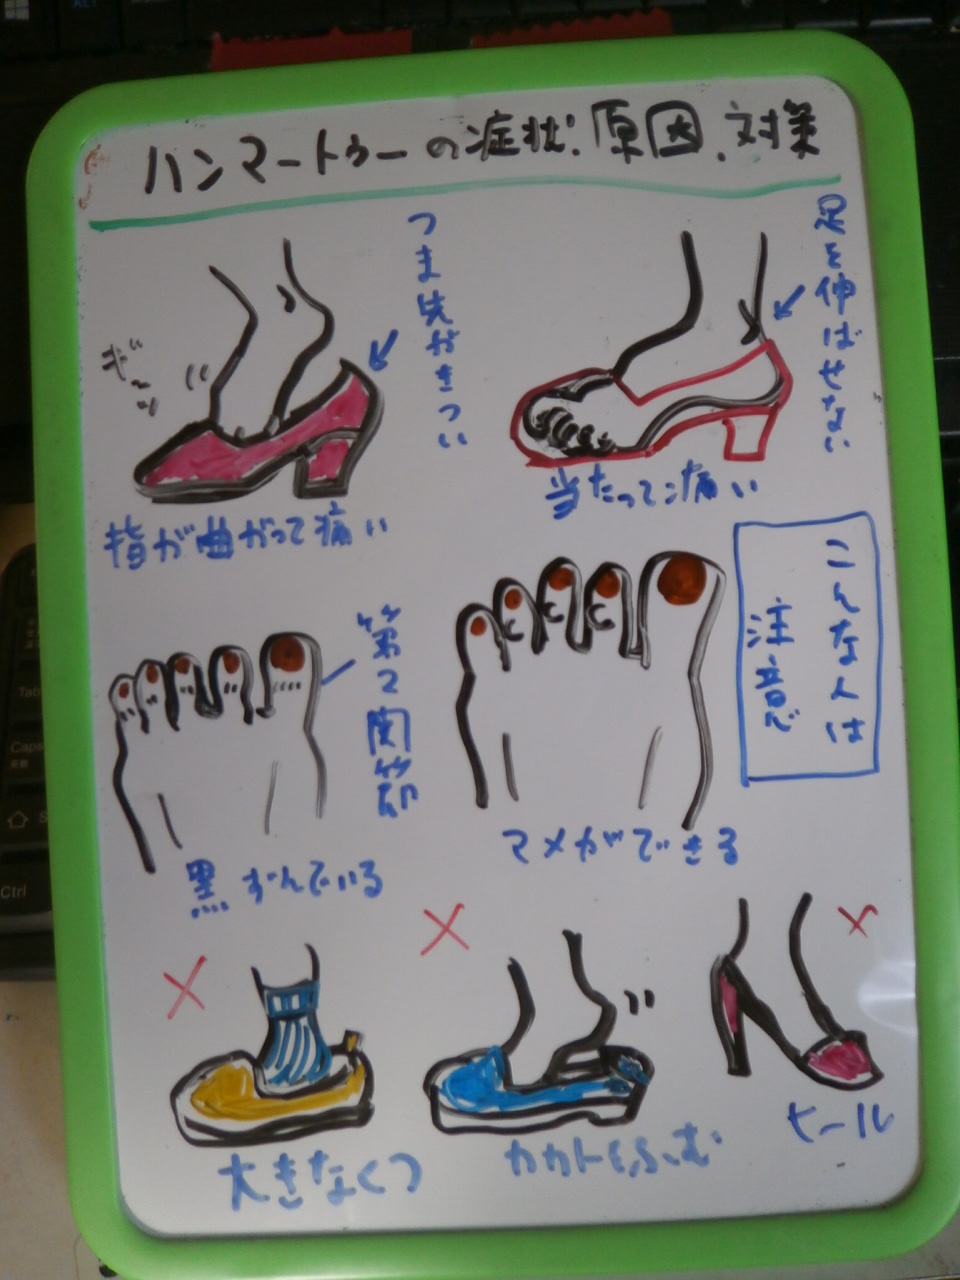 ハンマートゥーの症状.原因.対策
つま先がきつい
足を伸ばせない
ギーッ
指が曲がって痛い
当たって痛い
こんな人は
注意
第2関節
黒ずんでいる
マメができる
大きなくつ
カカトをふむ
ヒール
Tab
Caps
Ctrl